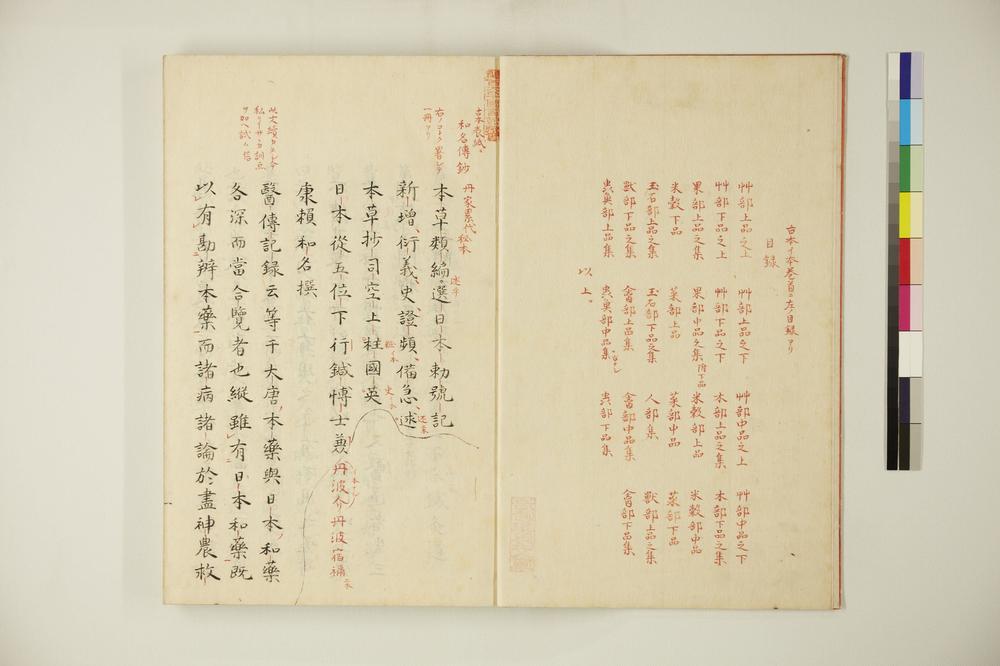 古本イ本巻首ニ左ノ目録アリ
目録
艸部上品之上 艸部上品之下 艸部中品之上 艸部中品之下
艸部下品之上 艸部下品之下 木部上品之集 木部下品之集
果部上品之集 果部中品之集附下品 米穀部上品 米穀部中品
米穀下品 菜部上品 菜部中品 菜部下品
玉石部上品之集 玉石部下品之集 人部集 獣部上品之集
獣部下品之集 禽部上品集 禽部中品集 禽部下品集
虫魚部上品集 虫魚部中品集 虫部下品集
以上
古本表紙
和名傳鈔
右ノコトク署シテ
一冊アリ
丹家累代秘本
本草類編選日本勅號記
新增衍義史證類備急逑
本草抄司空上柱國英
日本從五位下行鍼博士兼丹波介丹波宿禰
康賴和名撰
醫傳記録云等千大唐本藥與日本和藥
各深而當合覽者也縱雖有日本和藥既
以有勘辨本藥而諸病諸論於盡神農救